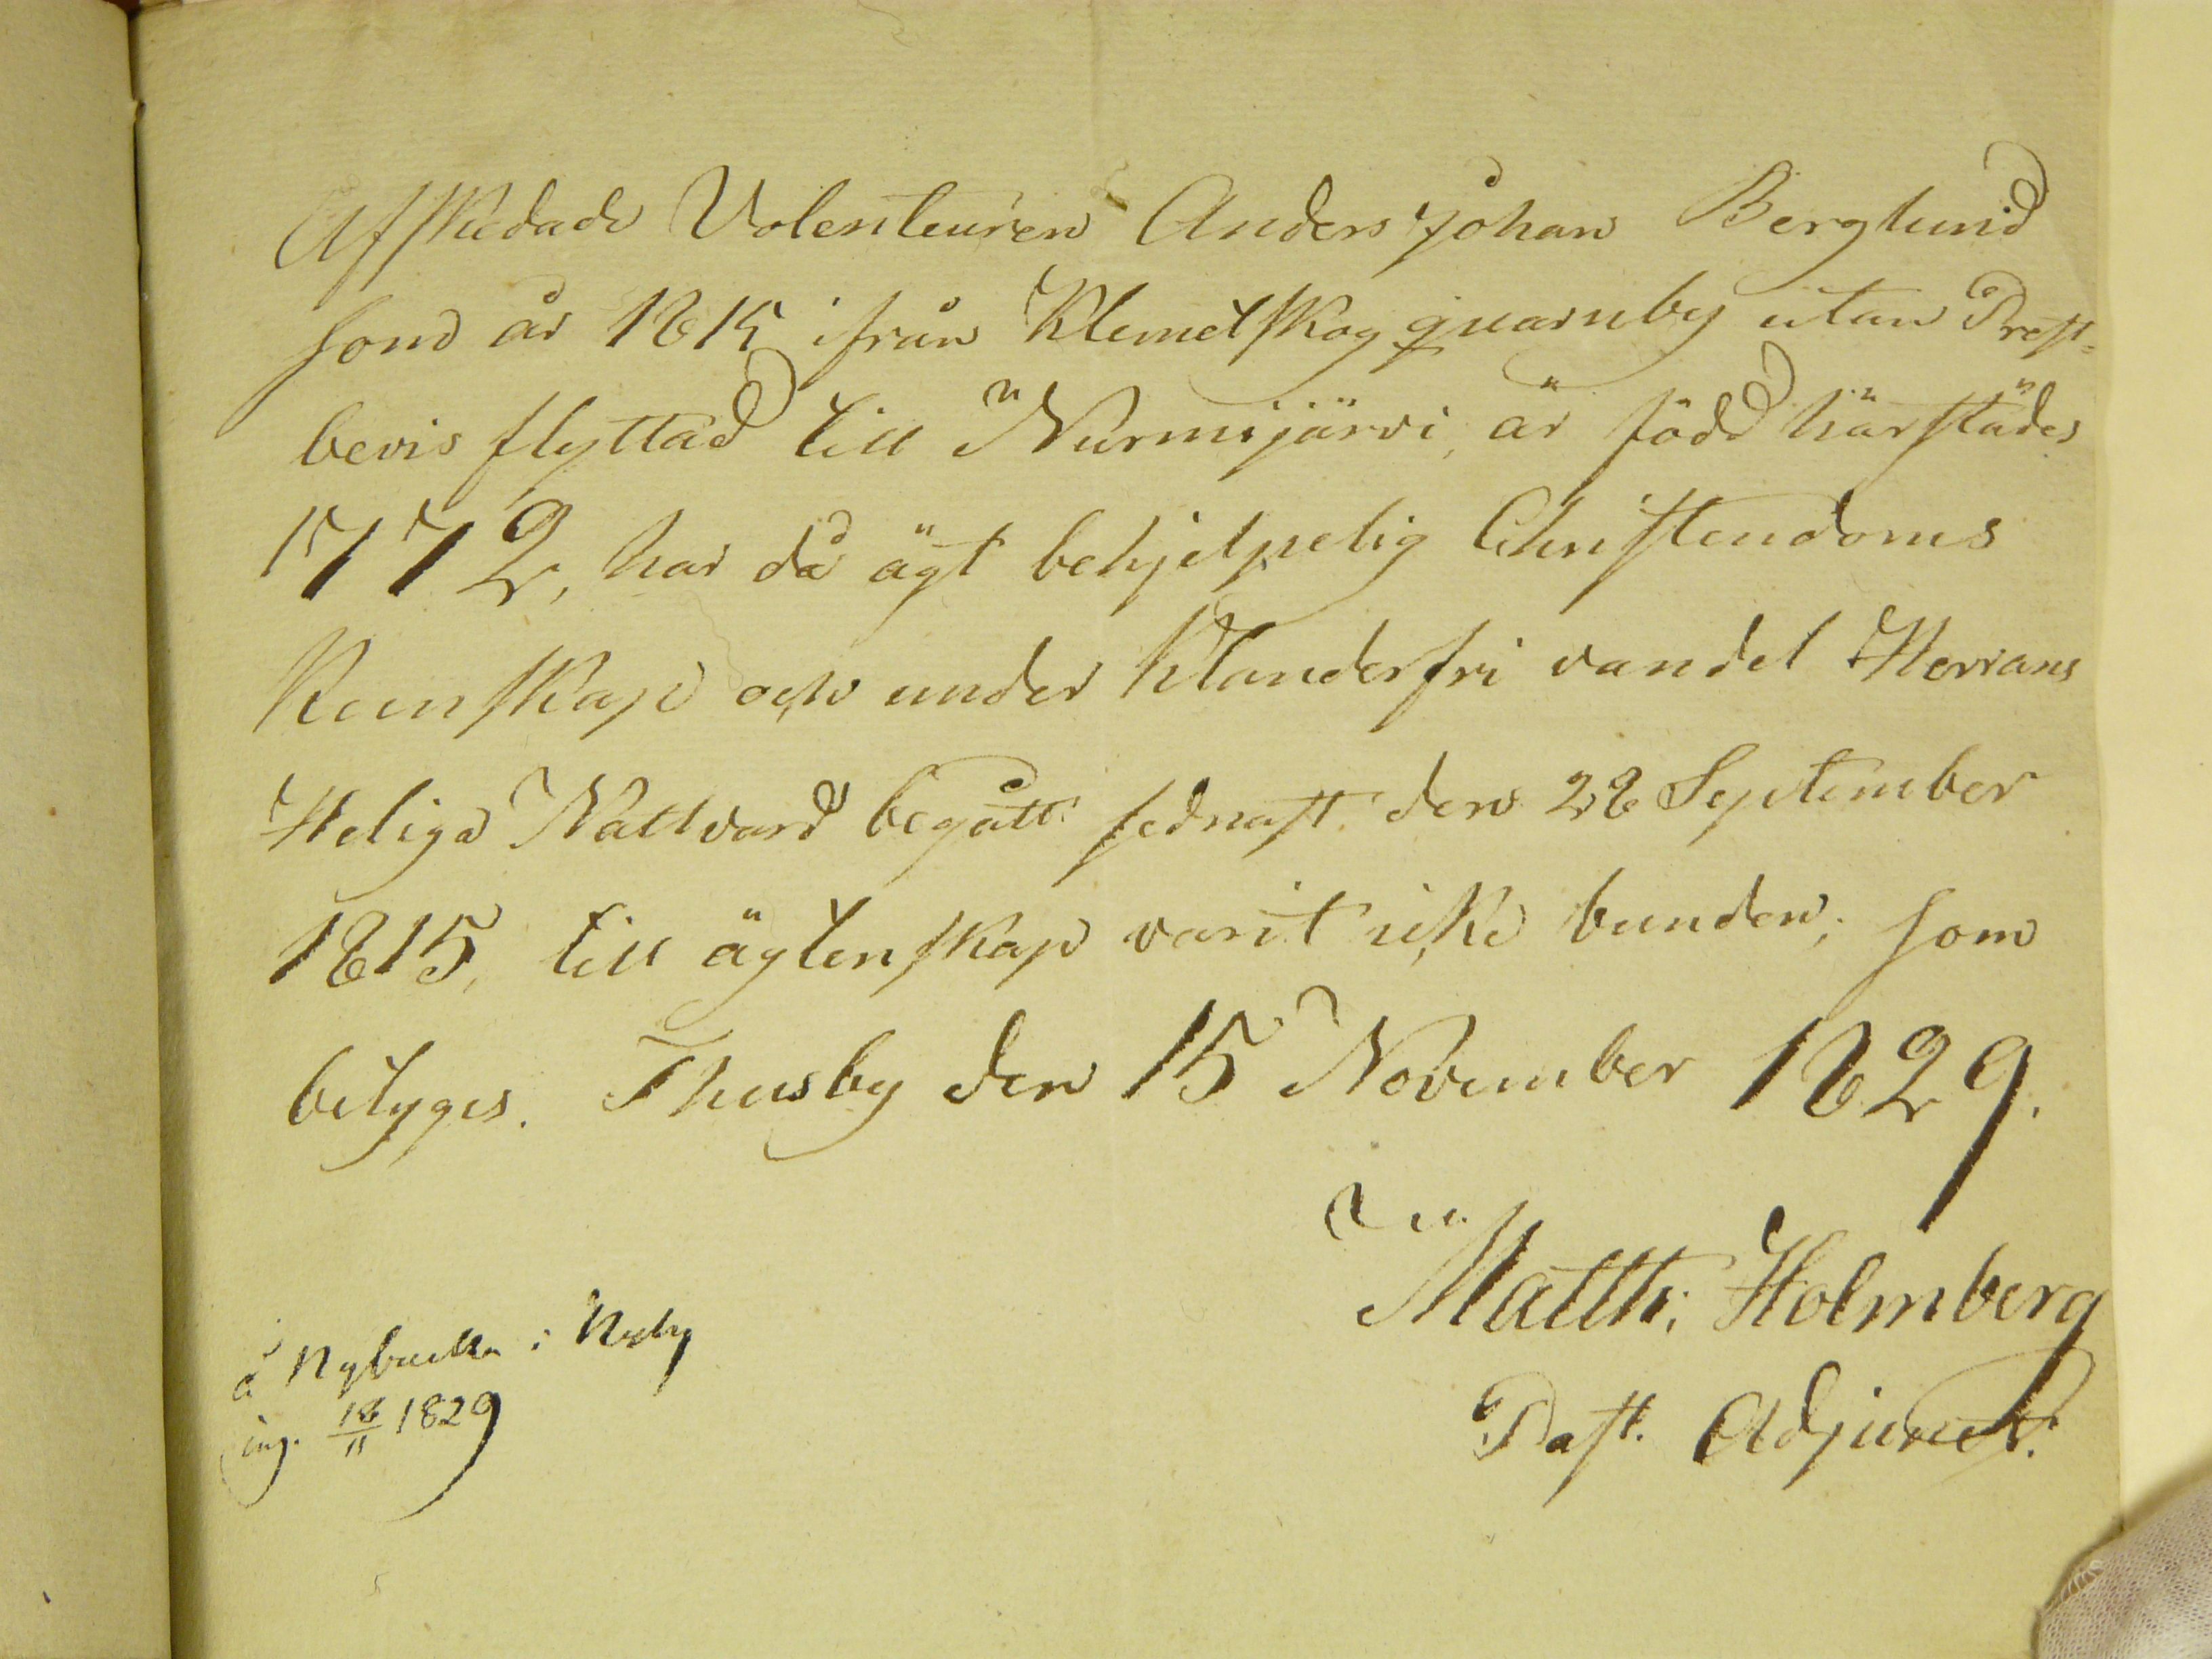 Afskedade Volenteuren Anders Johan Berglund
som år 1815 ifrån Klemetskog quarnby utan Prest-
bevis flyttad till Nurmijärvi, är född härstädes
1772, har då ägt behjelpelig Christendoms
Kunskap och under Klanderfri vandel Herrans
Heliga Nattvard begått sednast den 28 September
1815, till ägtenskap varit icke bunden; som
betyges. Thusby den 15 November 1829.
Matth: Holmberg
Past. Adjunct.
å Nybacka i
ing. 18/11 1829